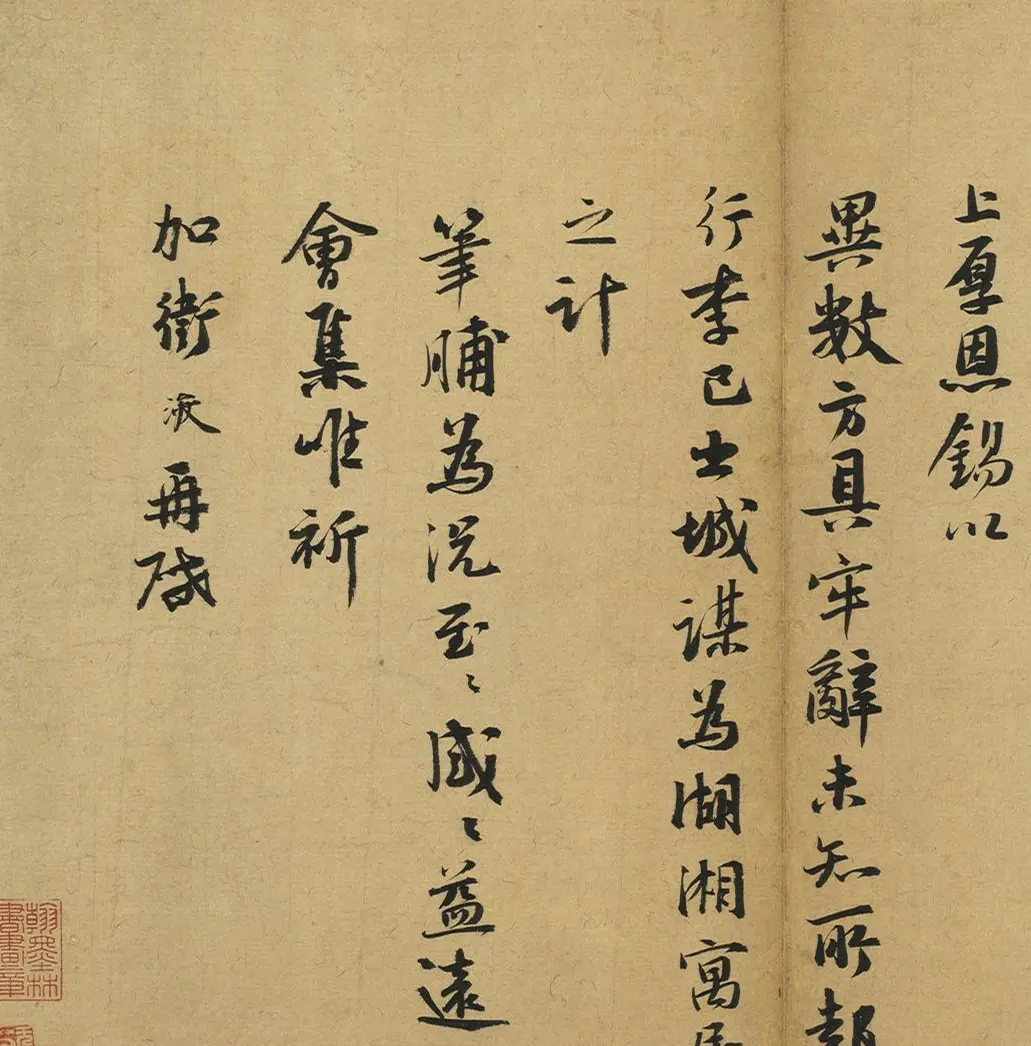 上厚恩錫以
異數方具牢辭未知所報
行李已出城謀為湖湘寓居
之計
筆脯為況至〻感〻益遠
會集唯祈
加衛浚再啓
翰墨林書畫章